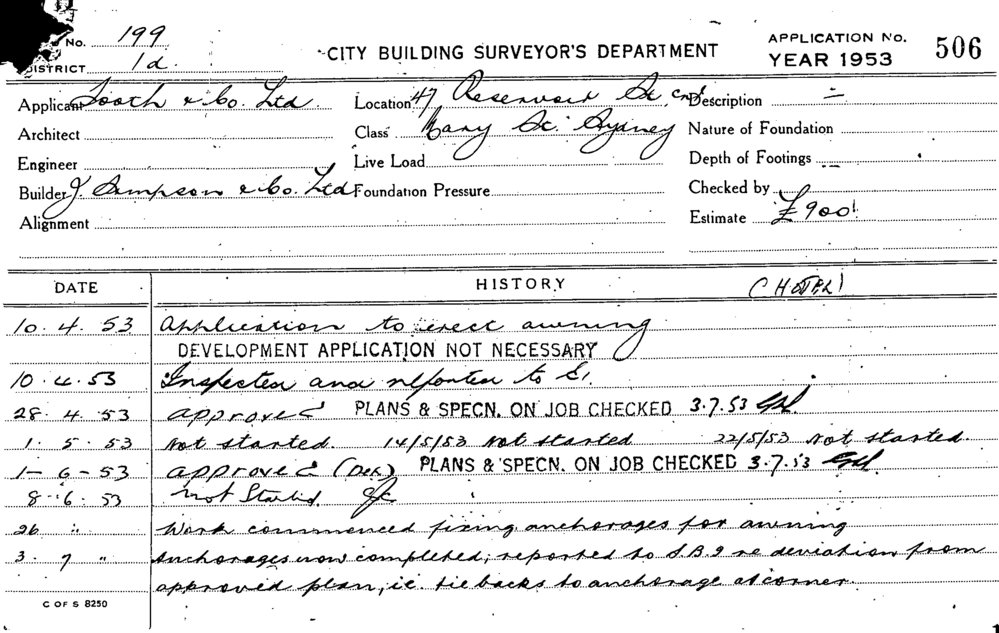 No. 199
DISTRICT 1d.
CITY BUILDING SURVEYOR'S DEPARTMENT
APPLICATION No. 506
YEAR 1953
Applicant Tooth & Co. Ltd
Location 47 Reservoir St. cnr
Description —
Architect
Class Mary St. Sydney
Nature of Foundation
Engineer
Live Load
Depth of Footings
Builder J. Simpson & Co. Ltd
Foundation Pressure
Checked by
Alignment
Estimate £900
DATE HISTORY (HOTEL)
10. 4. 53 Application to erect awning
DEVELOPMENT APPLICATION NOT NECESSARY
10. 4. 53 Inspected and reported to
28. 4. 53 approved PLANS & SPECN. ON JOB CHECKED 3.7.53
1. 5. 53 Not started. 14/5/53 Not started 22/5/53 Not started.
1-6-53 approved PLANS & SPECN. ON JOB CHECKED 3.7.53
8-6.53 Not Started.
26 " Work commenced fixing anchorages for awning
3. 7 " Anchorages now completed; reported to re deviation from
approved plan, i.e. tie backs to anchorage at corner.
C OF S 8250